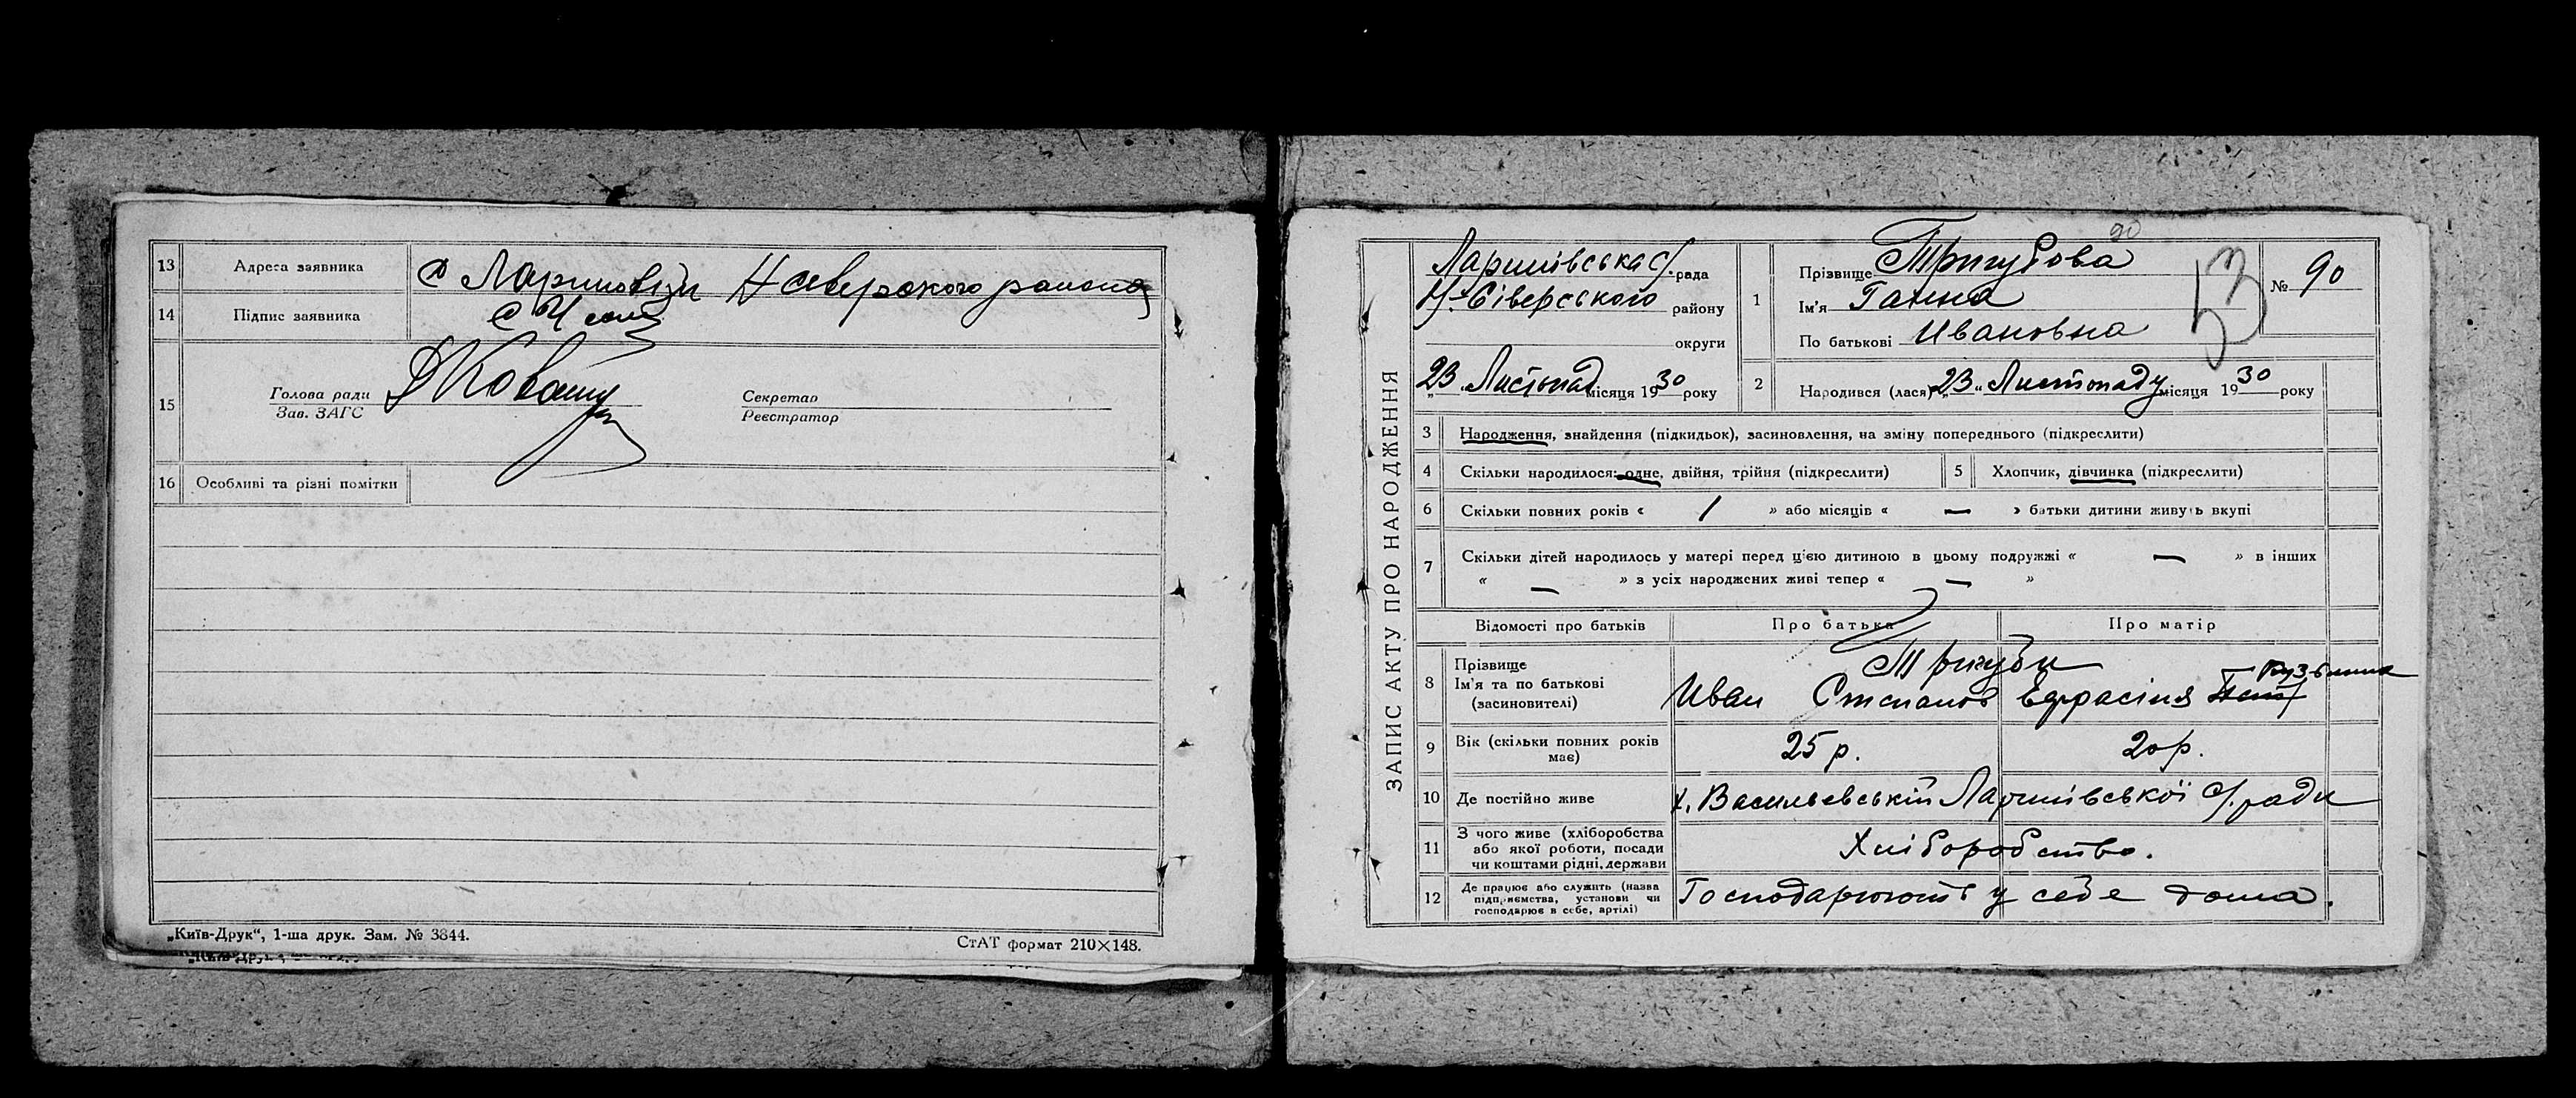 13 Адреса заявника с Лариновки Н Северского района
14 Підпис заявника
15 Голова ради Секретар
Зав. ЗАГС Реєстратор
16 Особливі та різні помітки
„Київ-Друк“, 1-ша друк. Зам. № 3844. СтАТ формат 210×148.
ЗАПИС АКТУ ПРО НАРОДЖЕННЯ
90
53
Ларинівська с/рада
Н-Сіверського району
округи
„23„ Листопад місяця 1930 року
1 Прізвище Тригубова
Ім'я Ганна
По батькові Ивановна
№ 90
2 Народився (лася) „23„ Листопаду місяця 1930 року
3 Народження, знайдення (підкидьок), засиновлення, на зміну попереднього (підкреслити)
4 Скільки народилося: одне, двійня, трійня (підкреслити) 5 Хлопчик, дівчинка (підкреслити)
6 Скільки повних років « 1 » або місяців « — » батьки дитини живуть вкупі
7 Скільки дітей народилось у матері перед цією дитиною в цьому подружжі « — » в інших
« — » з усіх народжених живі тепер « — »
Відомості про батьків Про батька Про матір
8 Прізвище
Ім'я та по батькові
(засиновителі)
Тригуби
Иван Степанов Ефрасіня Кузьмина
9 Вік (скільки повних років має) 25 р. 20 р.
10 Де постійно живе х. Васильевській Ларинівської с/ради
11 З чого живе (хліборобства
або якої роботи, посади
чи коштами рідні, держави
Хліборобство.
12 Де працює або служить (назва
підприємства, установи чи
господарює в себе, артілі)
Господарюють у себе дома.